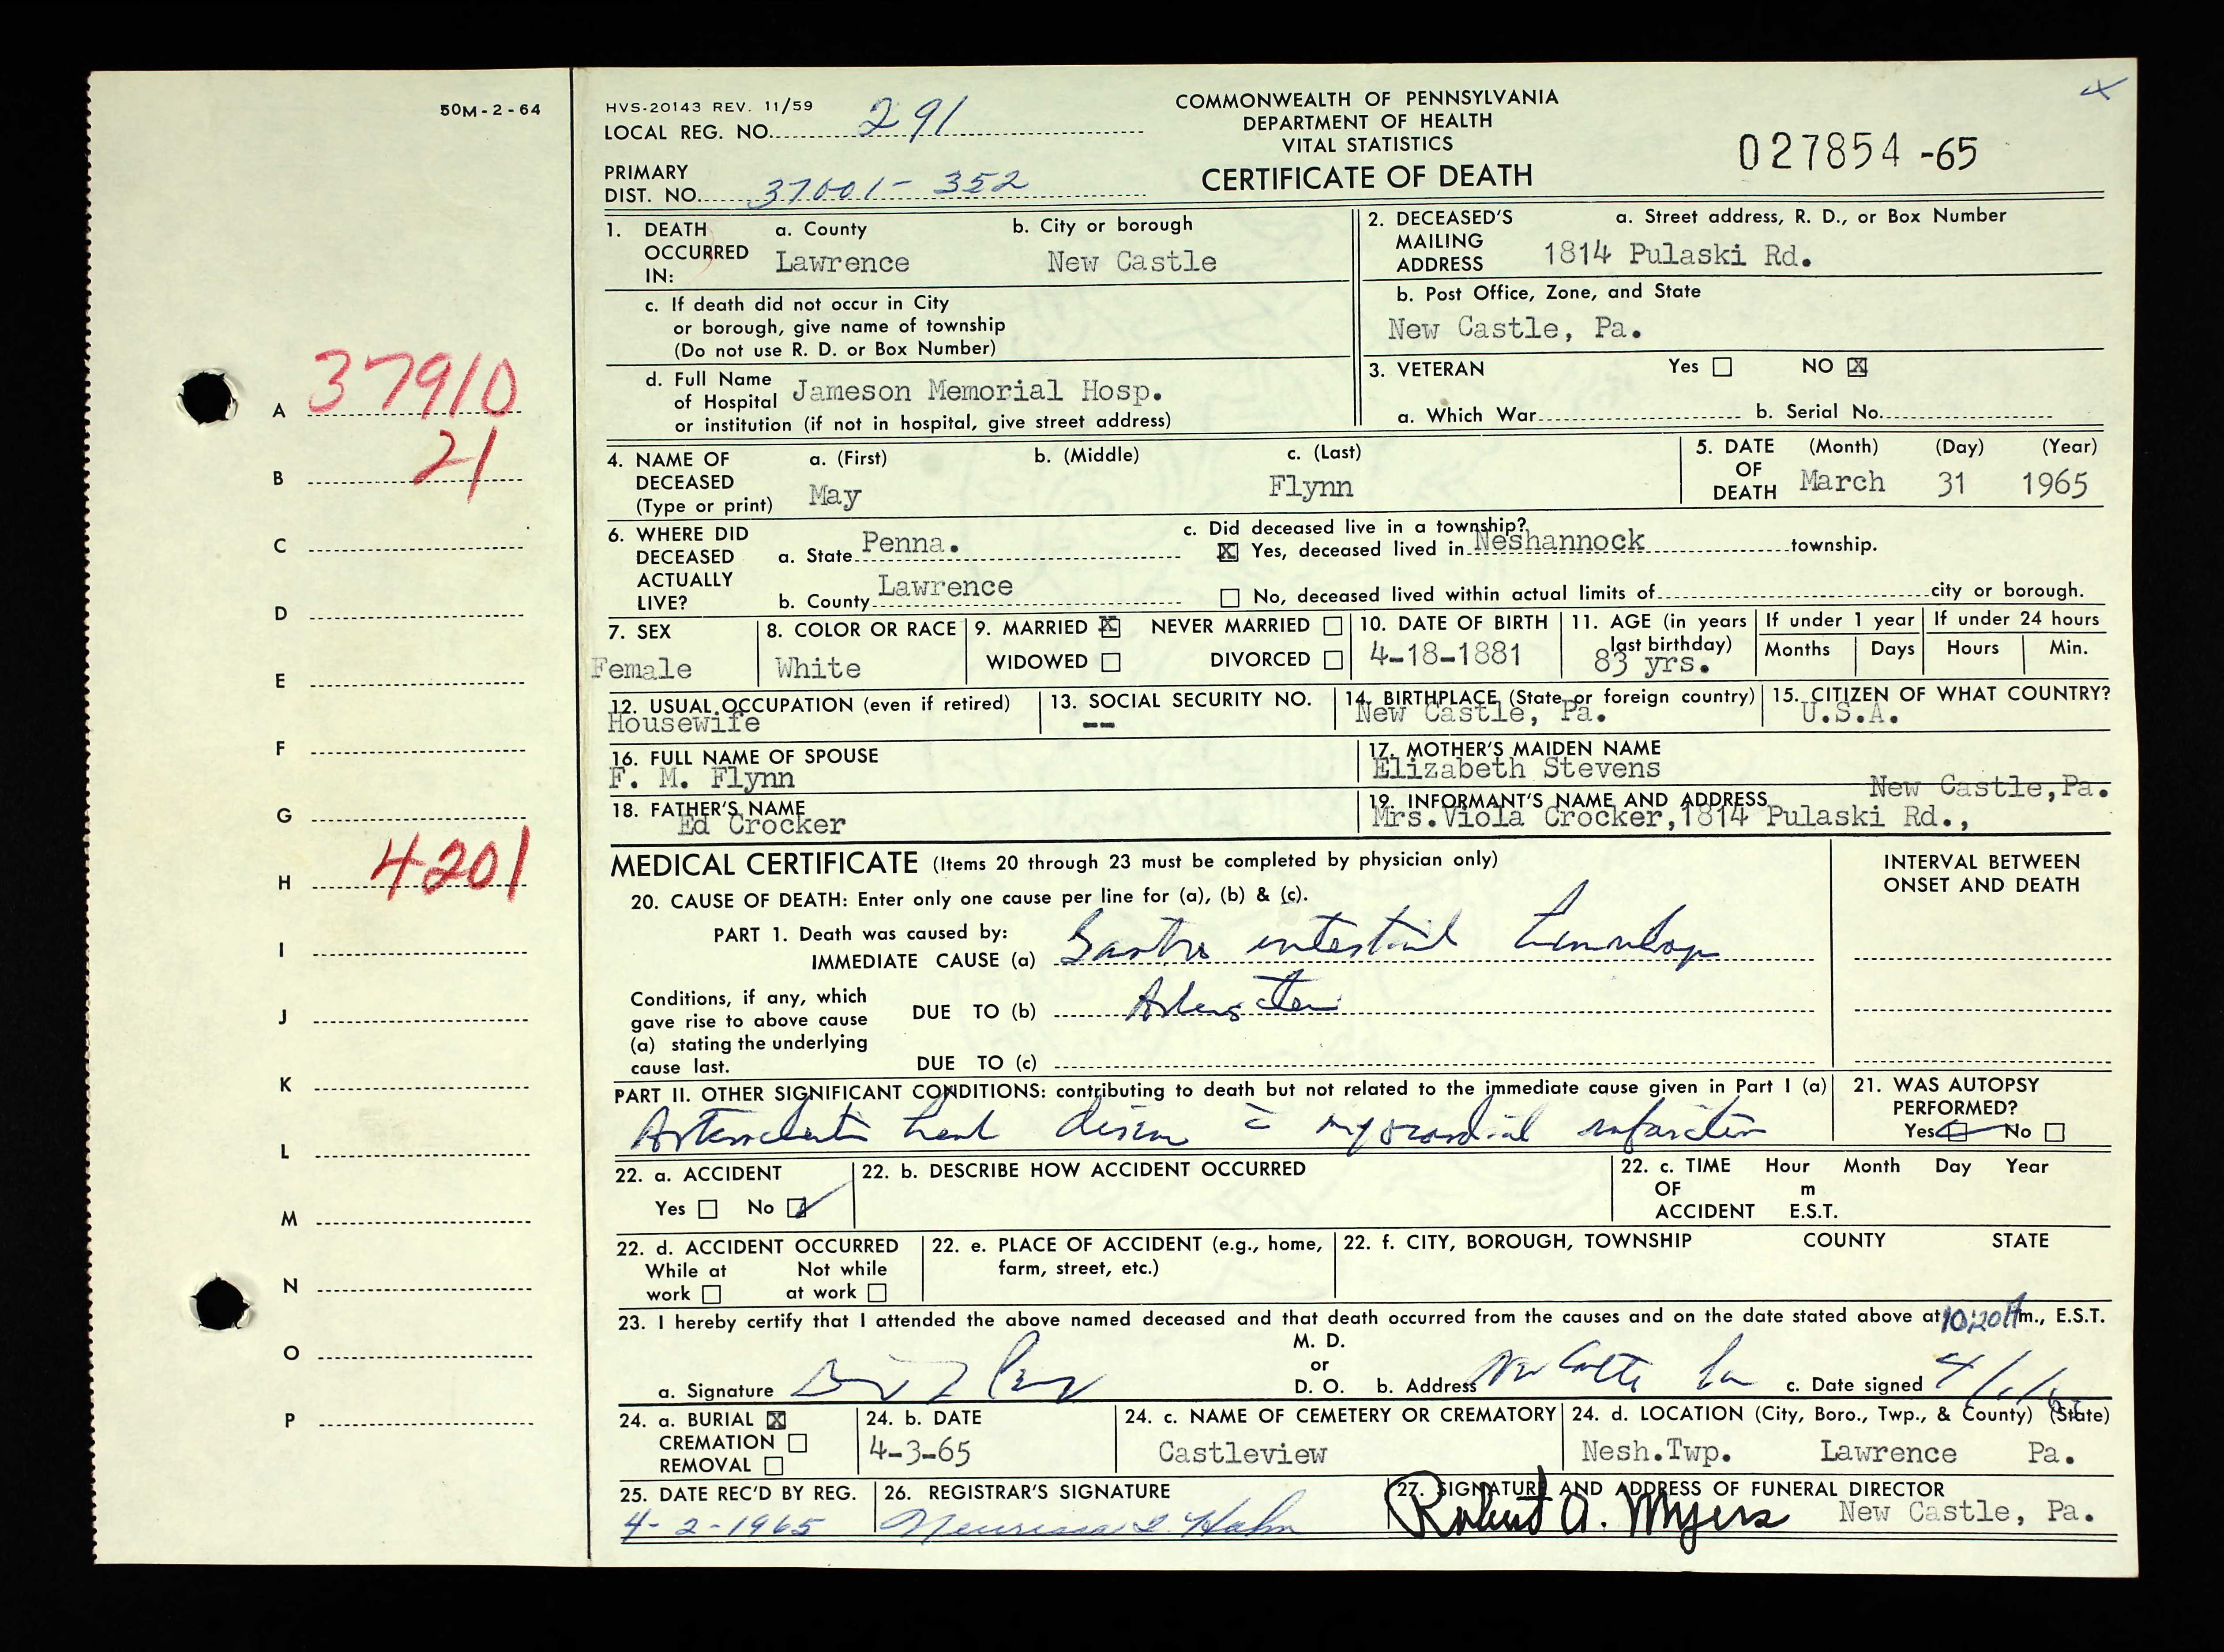 50M-2-64
HVS-20143 REV. 11/59
LOCAL REG. NO. 291
COMMONWEALTH OF PENNSYLVANIA
DEPARTMENT OF HEALTH
VITAL STATISTICS
CERTIFICATE OF DEATH
027854-65
PRIMARY
DIST. NO. 37001-352
1. DEATH OCCURRED IN:
a. County
Lawrence
b. City or borough
New Castle
c. If death did not occur in City
or borough, give name of township
(Do not use R. D. or Box Number)
d. Full Name
of Hospital Jameson Memorial Hosp.
or institution (if not in hospital, give street address)
2. DECEASED'S MAILING ADDRESS
a. Street address, R. D., or Box Number
1814 Pulaski Rd.
b. Post Office, Zone, and State
New Castle, Pa.
3. VETERAN Yes NO X
a. Which War b. Serial No.
4. NAME OF DECEASED (Type or print)
a. (First) b. (Middle) c. (Last)
May Flynn
5. DATE OF DEATH (Month) (Day) (Year)
March 31 1965
6. WHERE DID DECEASED ACTUALLY LIVE?
a. State Penna.
b. County Lawrence
c. Did deceased live in a township?
X Yes, deceased lived in Neshannock township.
No, deceased lived within actual limits of city or borough.
7. SEX
Female
8. COLOR OR RACE
White
9. MARRIED X NEVER MARRIED
WIDOWED DIVORCED
10. DATE OF BIRTH
4-18-1881
11. AGE (in years last birthday)
83 yrs.
If under 1 year
Months Days
If under 24 hours
Hours Min.
12. USUAL OCCUPATION (even if retired)
Housewife
13. SOCIAL SECURITY NO.
--
14. BIRTHPLACE (State or foreign country)
New Castle, Pa.
15. CITIZEN OF WHAT COUNTRY?
U.S.A.
16. FULL NAME OF SPOUSE
F. M. Flynn
17. MOTHER'S MAIDEN NAME
Elizabeth Stevens
18. FATHER'S NAME
Ed Crocker
19. INFORMANT'S NAME AND ADDRESS
New Castle,Pa.
Mrs.Viola Crocker,1814 Pulaski Rd.,
MEDICAL CERTIFICATE (Items 20 through 23 must be completed by physician only)
INTERVAL BETWEEN
ONSET AND DEATH
20. CAUSE OF DEATH: Enter only one cause per line for (a), (b) & (c).
PART 1. Death was caused by:
IMMEDIATE CAUSE (a) Gastro intestinal
Conditions, if any, which
gave rise to above cause
(a) stating the underlying
cause last.
DUE TO (b)
DUE TO (c)
PART II. OTHER SIGNIFICANT CONDITIONS: contributing to death but not related to the immediate cause given in Part I (a)
heart disease c̄ myocardial infarction
21. WAS AUTOPSY
PERFORMED?
Yes No
22. a. ACCIDENT
Yes No
22. b. DESCRIBE HOW ACCIDENT OCCURRED
22. c. TIME OF ACCIDENT
Hour Month Day Year
m
E.S.T.
22. d. ACCIDENT OCCURRED
While at work
Not while at work
22. e. PLACE OF ACCIDENT (e.g., home,
farm, street, etc.)
22. f. CITY, BOROUGH, TOWNSHIP COUNTY STATE
23. I hereby certify that I attended the above named deceased and that death occurred from the causes and on the date stated above at 10:20 A m., E.S.T.
a. Signature
M. D.
or
D. O.
b. Address New Castle Pa
c. Date signed
24. a. BURIAL X
CREMATION
REMOVAL
24. b. DATE
4-3-65
24. c. NAME OF CEMETERY OR CREMATORY
Castleview
24. d. LOCATION (City, Boro., Twp., & County) (State)
Nesh.Twp. Lawrence Pa.
25. DATE REC'D BY REG.
4-2-1965
26. REGISTRAR'S SIGNATURE
Hahn
27. SIGNATURE AND ADDRESS OF FUNERAL DIRECTOR
Robert A. Myers New Castle, Pa.
A 37910
B 21
C
D
E
F
G
H 4201
I
J
K
L
M
N
O
P